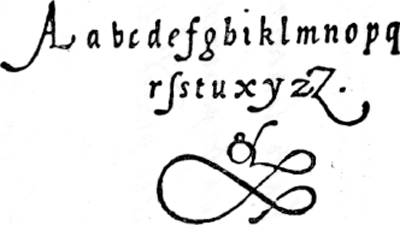 A a b c d e f g h i k l m n o p q
r ſ s t u x y z Z.
&